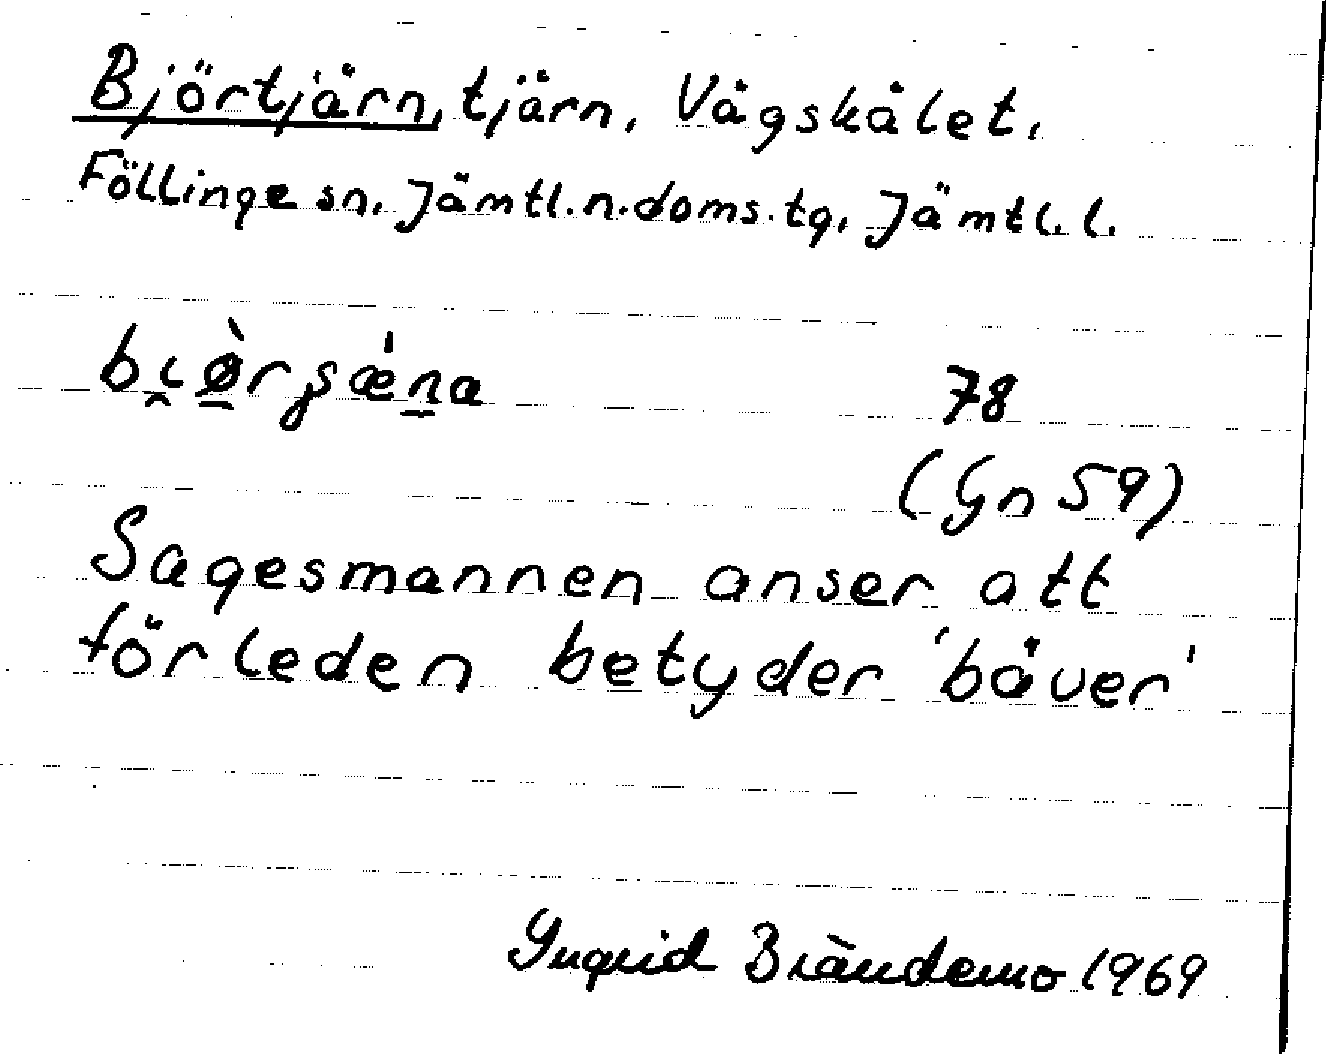 Björtjärn, tjärn, Vågskålet.
Föllinge sn. Jämtl.n.doms.tg. Jämtl.l.
78
(Gn 59)
Sagesmannen anser att
förleden betyder 'bäver'
Ingrid Brändemo 1969